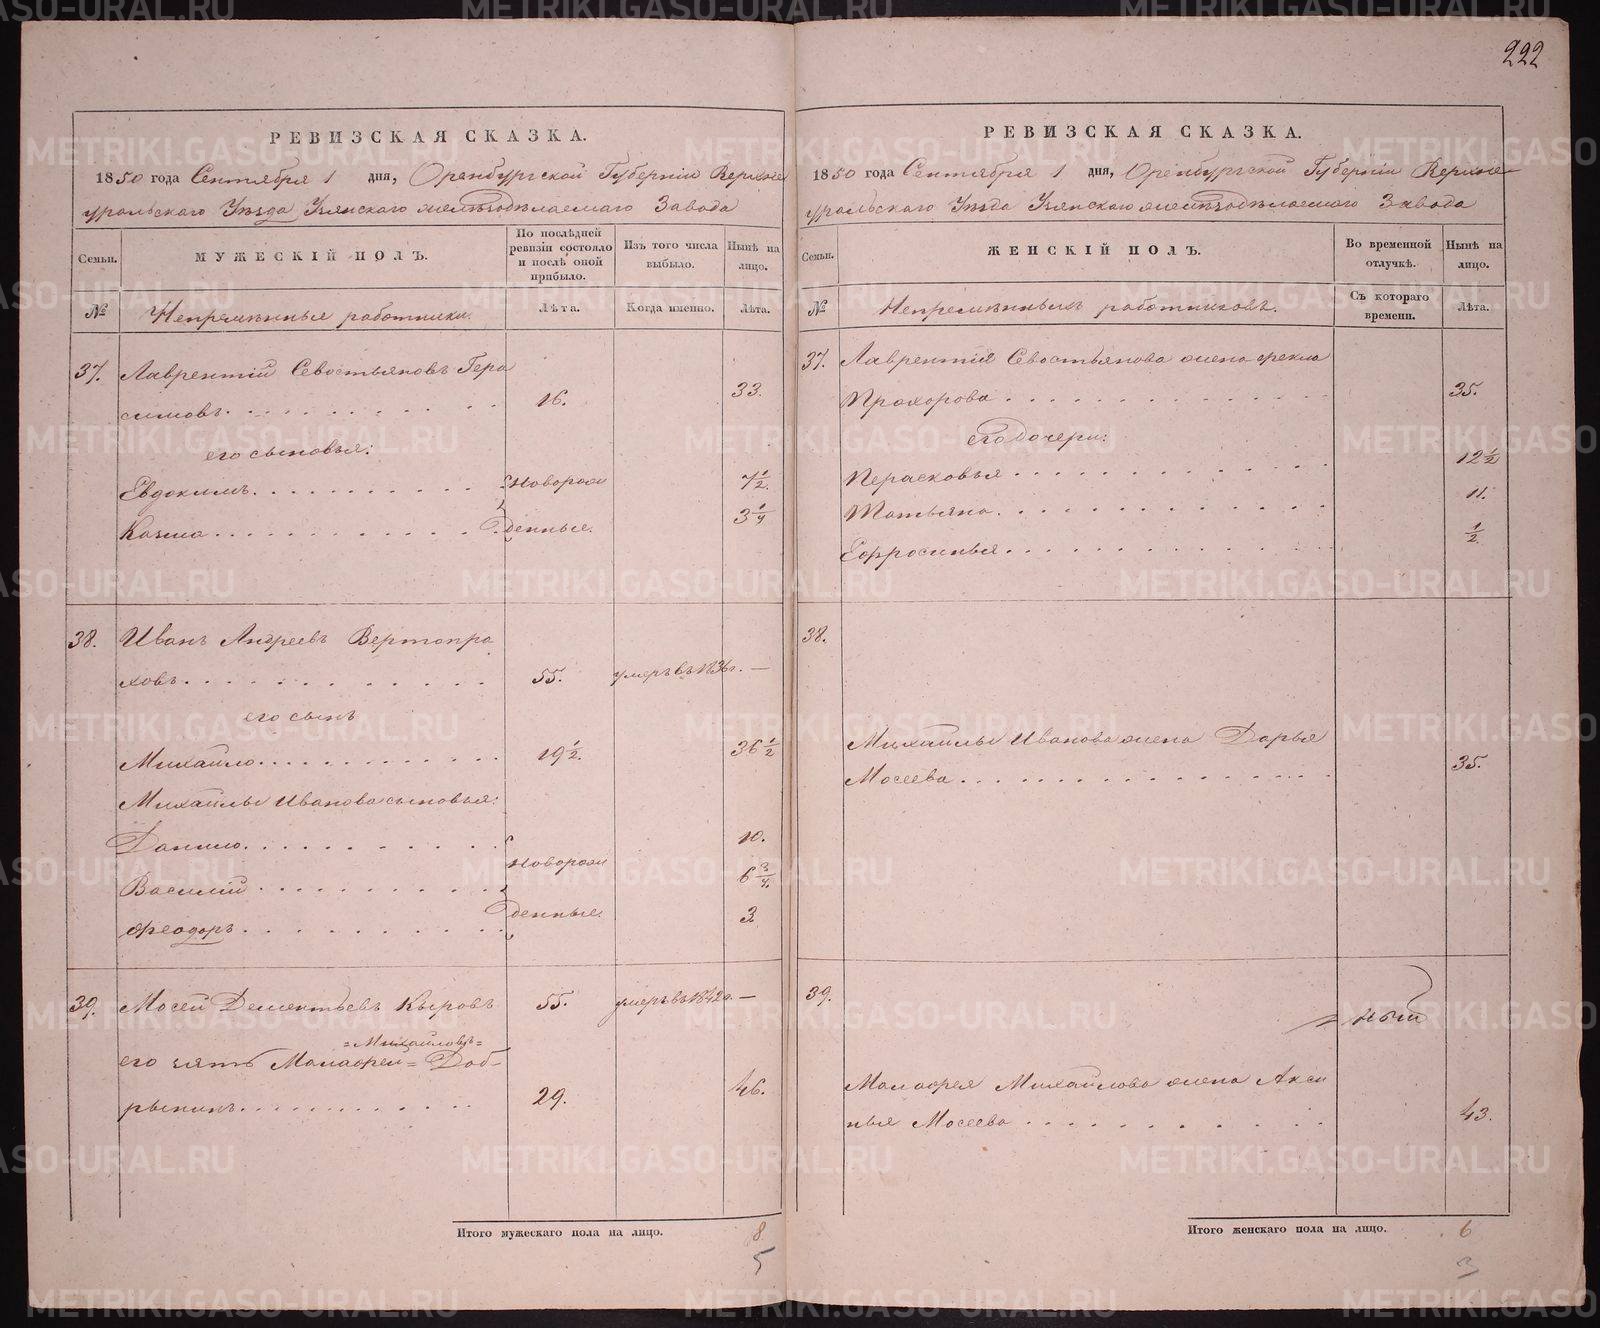 222
РЕВИЗСКАЯ СКАЗКА.
1850 года Сентября 1 дня, Оренбургской Губерніи Верхне
уральскаго Уѣзда Узянскаго желѣзодѣлаемаго Завода
Семьи.
МУЖЕСКІЙ ПОЛЪ.
По послѣдней
ревизіи состояло
и послѣ оной
прибыло.
Изъ того числа
выбыло.
Нынѣ на
лицо.
№
Непремѣнные работники.
Лѣта.
Когда именно.
Лѣта.
37. Лаврентій Севостьяновъ Гера
симовъ. 16. 33.
его сыновья:
Евдокимъ. Новорож 7 1/2.
Казма денные. 3 1/4
38. Иванъ Андреевъ Вертопра
ховъ. 55. умеръ въ 1836 г. —
его сынъ
Михайло. 19 1/2. 36 1/2
Михайлы Иванова сыновья:
Данило. 10.
Новорож
Василій 6 3/4.
денные.
Феодоръ. 3.
39. Мосей Дементьевъ Кыровъ 55. умеръ въ 1842 г. —
=Михайловъ=
его зять Малафей= Доб-
рынинъ. 29. 46.
Итого мужескаго пола на лицо. 8
5
РЕВИЗСКАЯ СКАЗКА.
1850 года Сентября 1 дня, Оренбургской Губерніи Верхне
уральскаго Уѣзда Узянскаго желѣзодѣлаемаго Завода
Семьи.
ЖЕНСКІЙ ПОЛЪ.
Во временной
отлучкѣ.
Нынѣ на
лицо.
№
Непремѣнныхъ работниковъ.
Съ котораго
времени.
Лѣта.
37. Лаврентія Севостьянова жена Фекла
Прохорова 35.
его дочери:
Перасковья 12 1/2
Татьяна. 11.
Ефросинья. 1/2.
38.
Михайлы Иванова жена Дарья
Мосеева 35.
39.
Малафея Михайлова жена Акси
нья Мосеева 43.
Итого женскаго пола на лицо. 6
3
METRIKI.GASO-URAL.RU